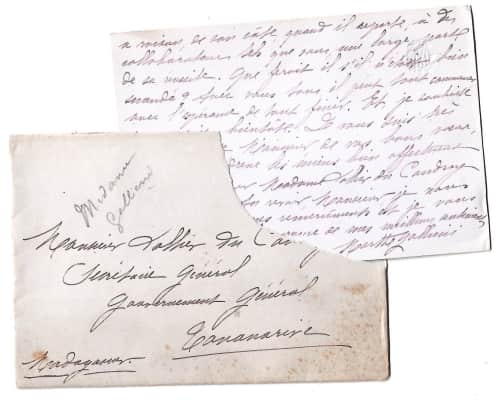 a mieux, de son côté quand il reporte, à des
collaborateurs tels que vous, une large part
de sa réussite. Que ferait il s'il n'était bien
secondé? Avec vous tous il peut tout commencer
avec l'espérance de tout finir. Et je souhaite
bientôt. Je vous suis très
Monsieur de vos bons vœux,
les miens bien affectueux
Madame Lallier du Coudray
Monsieur je vous
remerciements et je vous
mes meilleurs
Marthe Gallieni
Madame
Gallieni
Monsieur Lallier du Coudray
Secrétaire Général
Gouvernement Général
Tananarive
Madagascar